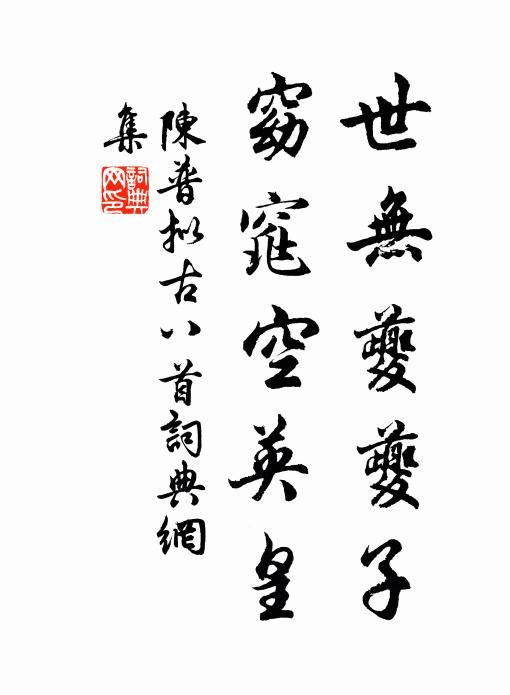 世無夔夔子
窈窕空英皇
陳普拟古八首詞典網
集
詞典
网印